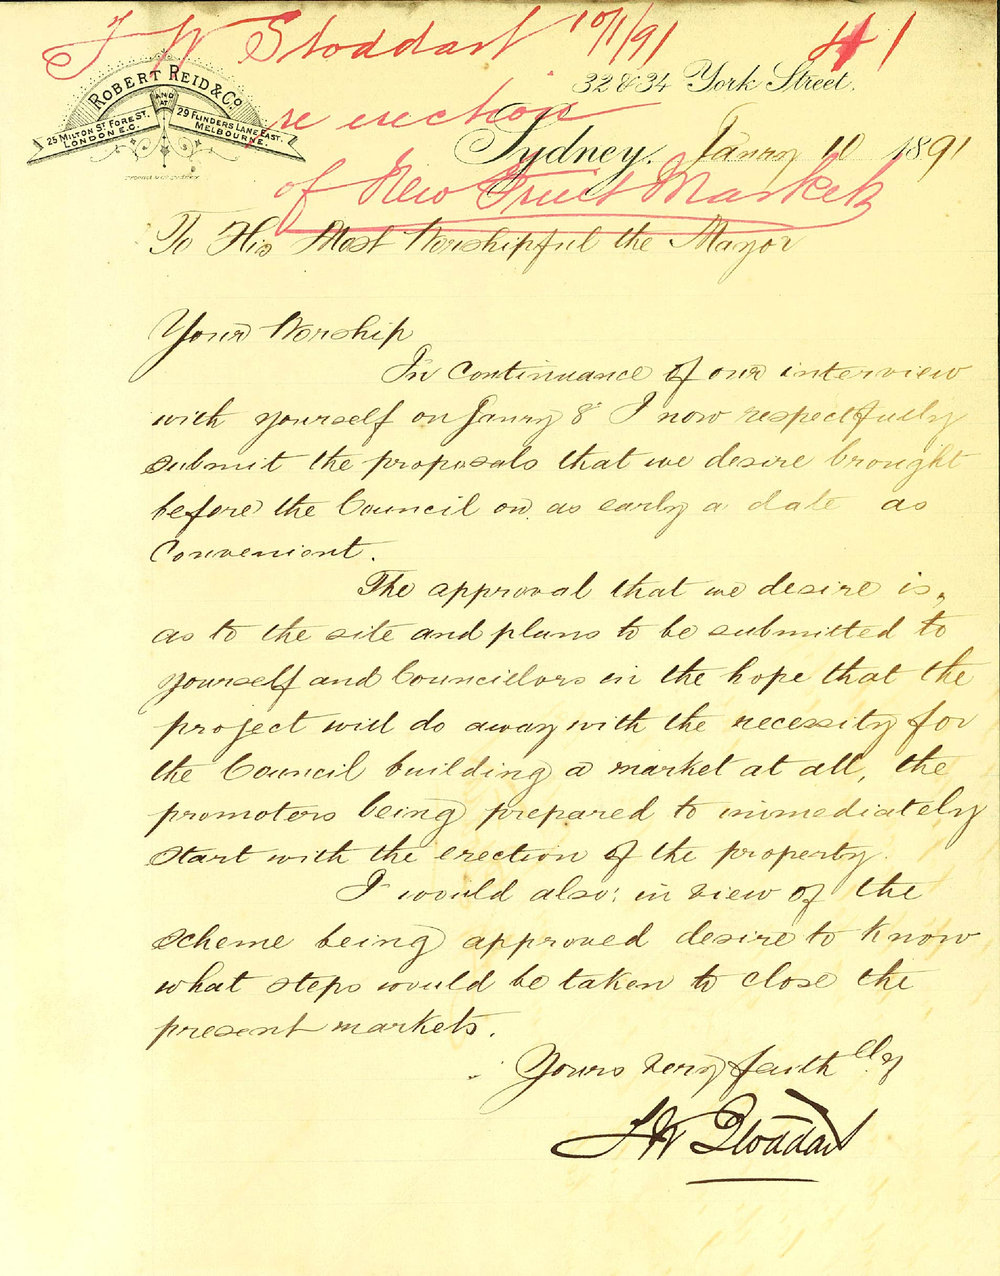 F W Stoddart 10/1/91 41
re erection
of New Fruit Market
ROBERT REID & Co.
AND AT
25 MILTON ST. FORE ST.
LONDON E.C.
29 FLINDERS LANE EAST.
MELBOURNE.
32 & 34 York Street.
Sydney. Janry 10 1891
To His Most Worshipful the Mayor
Your Worship
In continuance of our interview
with yourself on Janry 8th I now respectfully
submit the proposals that we desire brought
before the Council on as early a date as
convenient.
The approval that we desire is,
as to the site and plans to be submitted to
yourself and Councillors in the hope that the
project will do away with the necessity for
the Council building a market at all, the
promoters being prepared to immediately
start with the erection of the property.
I would also; in view of the
scheme being approved desire to know
what steps would be taken to close the
present markets.
Yours very faithlly
F W Stoddart